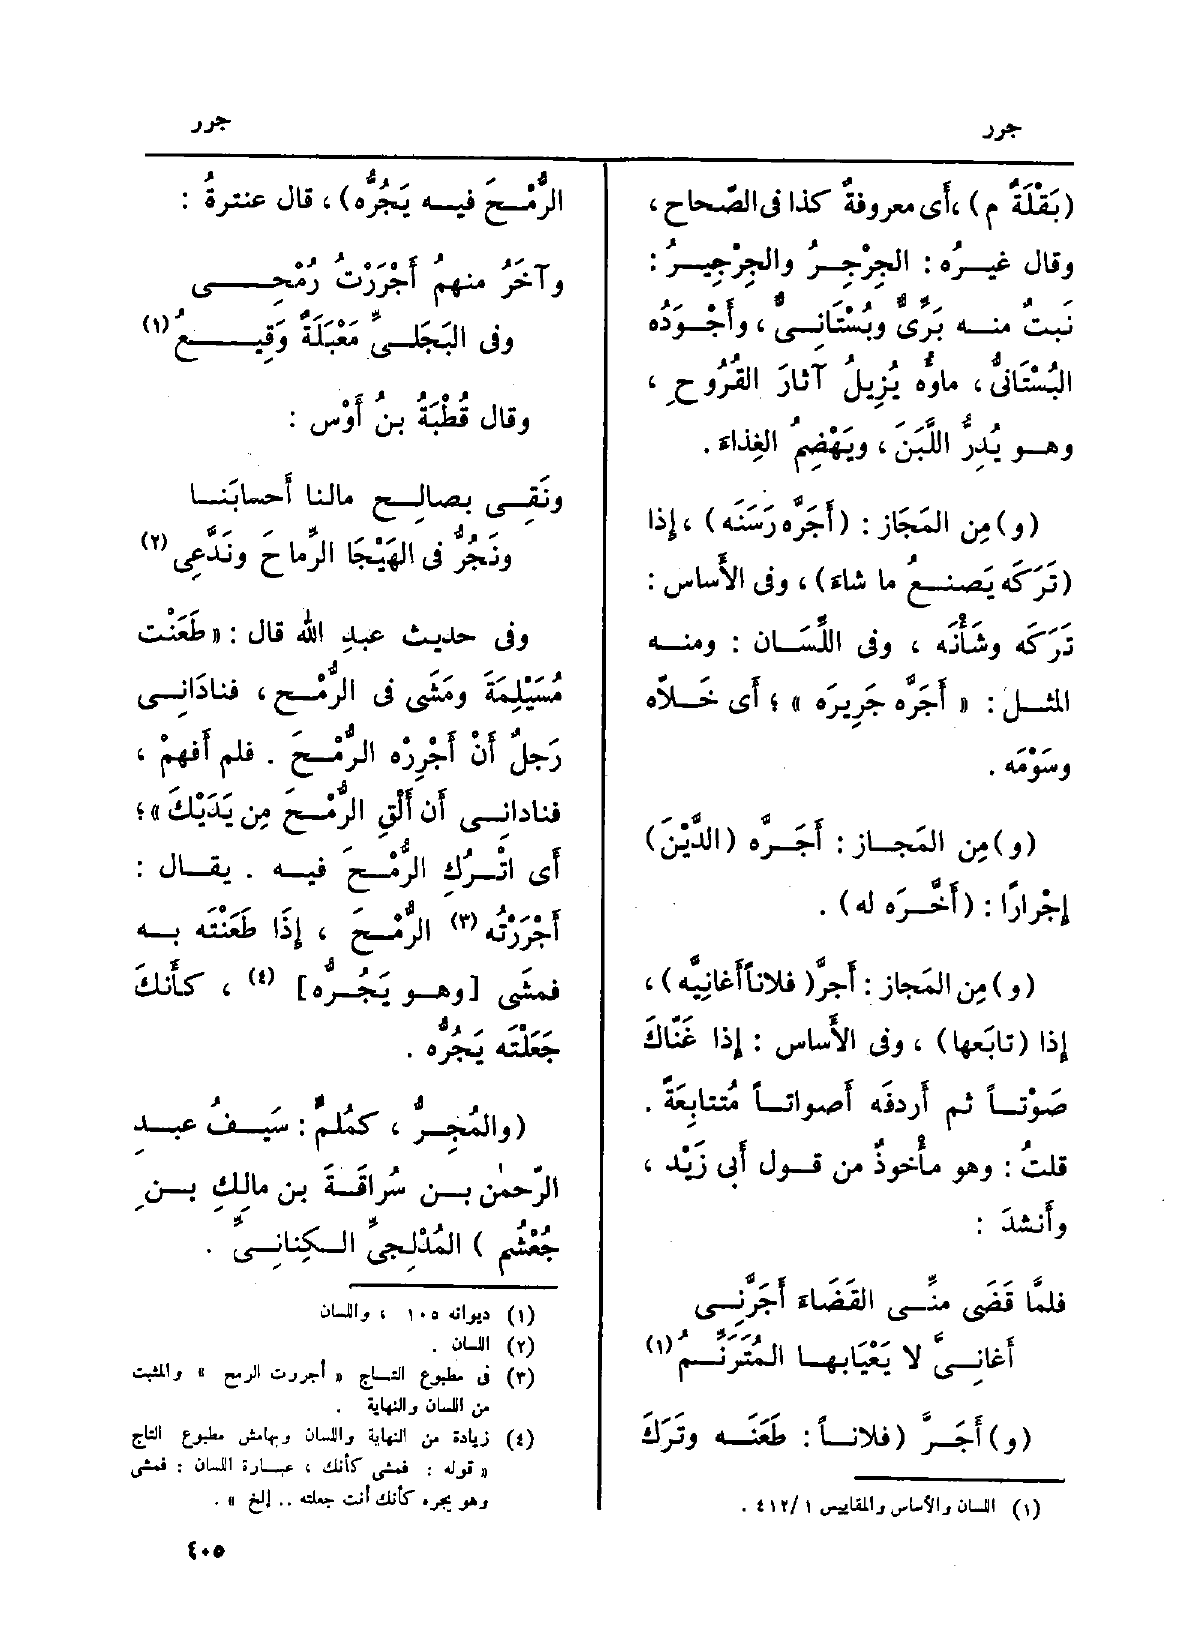 جرر
جرر
(بَقْلَةٌ م)، أَى معروفةٌ كذا فى الصّحاح،
وقال غيرُه : الجِرْجِرُ والجِرْجِيرُ :
نَبتٌ منه بَرِّىٌّ وبُسْتَانِىٌّ، وأَجْوَدُه
البُسْتَانىُّ، ماوُّه يُزِيلُ آثارَ القُرُوحِ ،
وهو يُدِرُّ اللَّبَنَ ، ويَهْضِمُ الغِذاءَ .
(و) مِن المَجَاز : (أَجَرَّه رَسَنَه) ، إِذا
(تَرَكَه يَصنعُ ما شاءَ)، وفى الأَساس :
تَرَكَه وشَأْنَه ، وفى اللِّسَان : ومنه
المثل : « أَجَرَّه جَرِيرَه » ؛ أَى خَلاّه
وسَوْمَه .
(و) مِن المَجاز : أَجَرَّه (الدَّيْنَ)
إِجْرارًا : (أَخَّرَه له) .
(و) مِن المَجاز : أَجرَّ (فلاناً أَغانِيَّه) ،
إِذا (تابَعها) ، وفى الأَساس : إِذا غَنّاكَ
صَوْتاً ثم أَردفَه أَصواتاً مُتتابِعَةً .
قلتُ : وهو مأْخوذٌ من قول أَبى زَيْد ،
وأَنشدَ :
فلمَّا قَضَى مِنِّى القَضَاءَ أَجَرَّنِى
أَغانِىَّ لا يَعْيَابها المُتَرَنِّمُ (١)
(و) أَجَرَّ (فلاناً : طَعَنَه وتَرَكَ
(١) اللسان والأساس والمقاييس ٤١٢/١ .
الرُّمْحَ فيه يَجُرُّه) ، قال عنترةُ :
وآخَرُ منهمُ أَجْرَرْتُ رُمْحِى
وفى البَجَلِىِّ مَعْبَلَةٌ وَقِيعُ (١)
وقال قُطْبَةُ بنُ أَوْس :
ونَقِى بصالِح مالنا أَحسابَنا
ونَجُرُّ فى الهَيْجَا الرِّماحَ ونَدَّعِى (٢)
وفى حديث عبدِ الله قال : « طَعَنْت
مُسَيْلِمَةَ ومَشَى فى الرُّمْح ، فنادَانِى
رَجلٌ أَنْ أَجْرِرْه الرُّمْحَ . فلم أَفهمْ ،
فنادانِى أَن أَلْقِ الرُّمْحَ مِن يَدَيْكَ »؛
أَى اتْرُكِ الرُّمْحَ فيه . يقال :
أَجْرَرْتُه (٣) الرُّمْحَ ، إِذَا طَعَنْتَه به
فمشَى [وهو يَجُرُّه] (٤) ، كأَنكَ
جَعَلْتَه يَجُرُّه .
(والمُجِرُّ ، كمُلِمٍّ : سَيفُ عبدِ
الرّحمٰن بن سُراقَةَ بن مالِكِ بنِ
جُعْشُم ) المُدْلِجىِّ الكِنانِىِّ .
(١) ديوانه ١٠٥ ، واللسان
(٢) اللسان .
(٣) فى مطبوع التاج « أجررت الرمح » والمثبت
من اللسان والنهاية .
(٤) زيادة من النهاية واللسان وبهامش مطبوع التاج
« قوله : فمشى كأنك ، عبارة اللسان : فمشى
وهو يجره كأنك أنت جعلته .. إلخ » .
٤٠٥